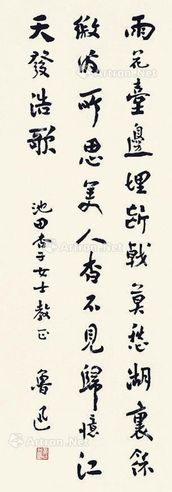 雨花臺邊埋斷戟莫愁湖裏餘
微波所思美人杳不見歸憶江
天發浩歌
池田杏子女士教正
魯迅
Artron.Net